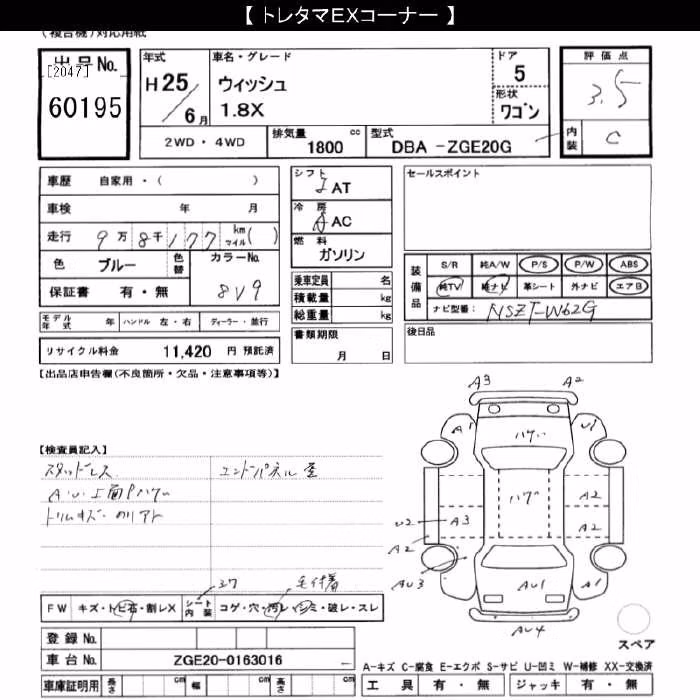 【 トレタマEXコーナー 】
(複合機)対応用紙
出品No.
[2047]
60195
年式
H25/6月
車名・グレード
ウィッシュ
1.8X
ドア
5
形状
ワゴン
評価点
3.5
内装
C
2WD・4WD
排気量 1800 cc
型式 DBA -ZGE20G
車歴 自家用・( )
車検 年 月
走行 9万8千177 km マイル( )
色 ブルー 色替 カラーNo.
保証書 有・無 8V9
モデル年式 年 ハンドル 左・右 ディーラー・並行
リサイクル料金 11,420 円 預託済
シフト AT
冷房 AC
燃料 ガソリン
乗車定員 名
積載量 kg
総重量 kg
書類期限
月 日
セールスポイント
装備品
S/R 純A/W P/S P/W ABS
純TV 純ナビ 革シート 外ナビ エアB
ナビ型番: NSZT-W62G
後日品
【出品店申告欄(不良箇所・欠品・注意事項等)】
【検査員記入】
スタッドレス
エンドパネル歪
A・U・上面Pハゲ
トリムキズ・
FW キズ・トビ石・割レX
シート内装 コゲ・穴・汚レ・シミ・破レ・スレ
スワ
毛付着
A3 A2
A1 ハゲ U1
ハゲ
A2
U2 A3 A2
A2
AU3 AU1 A1
AU4
スペア
登録No.
車台No. ZGE20-0163016
車庫証明用 長さ cm 幅 cm 高さ cm
A-キズ C-腐食 E-エクボ S-サビ U-凹ミ W-補修 XX-交換済
工具 有・無 ジャッキ 有・無